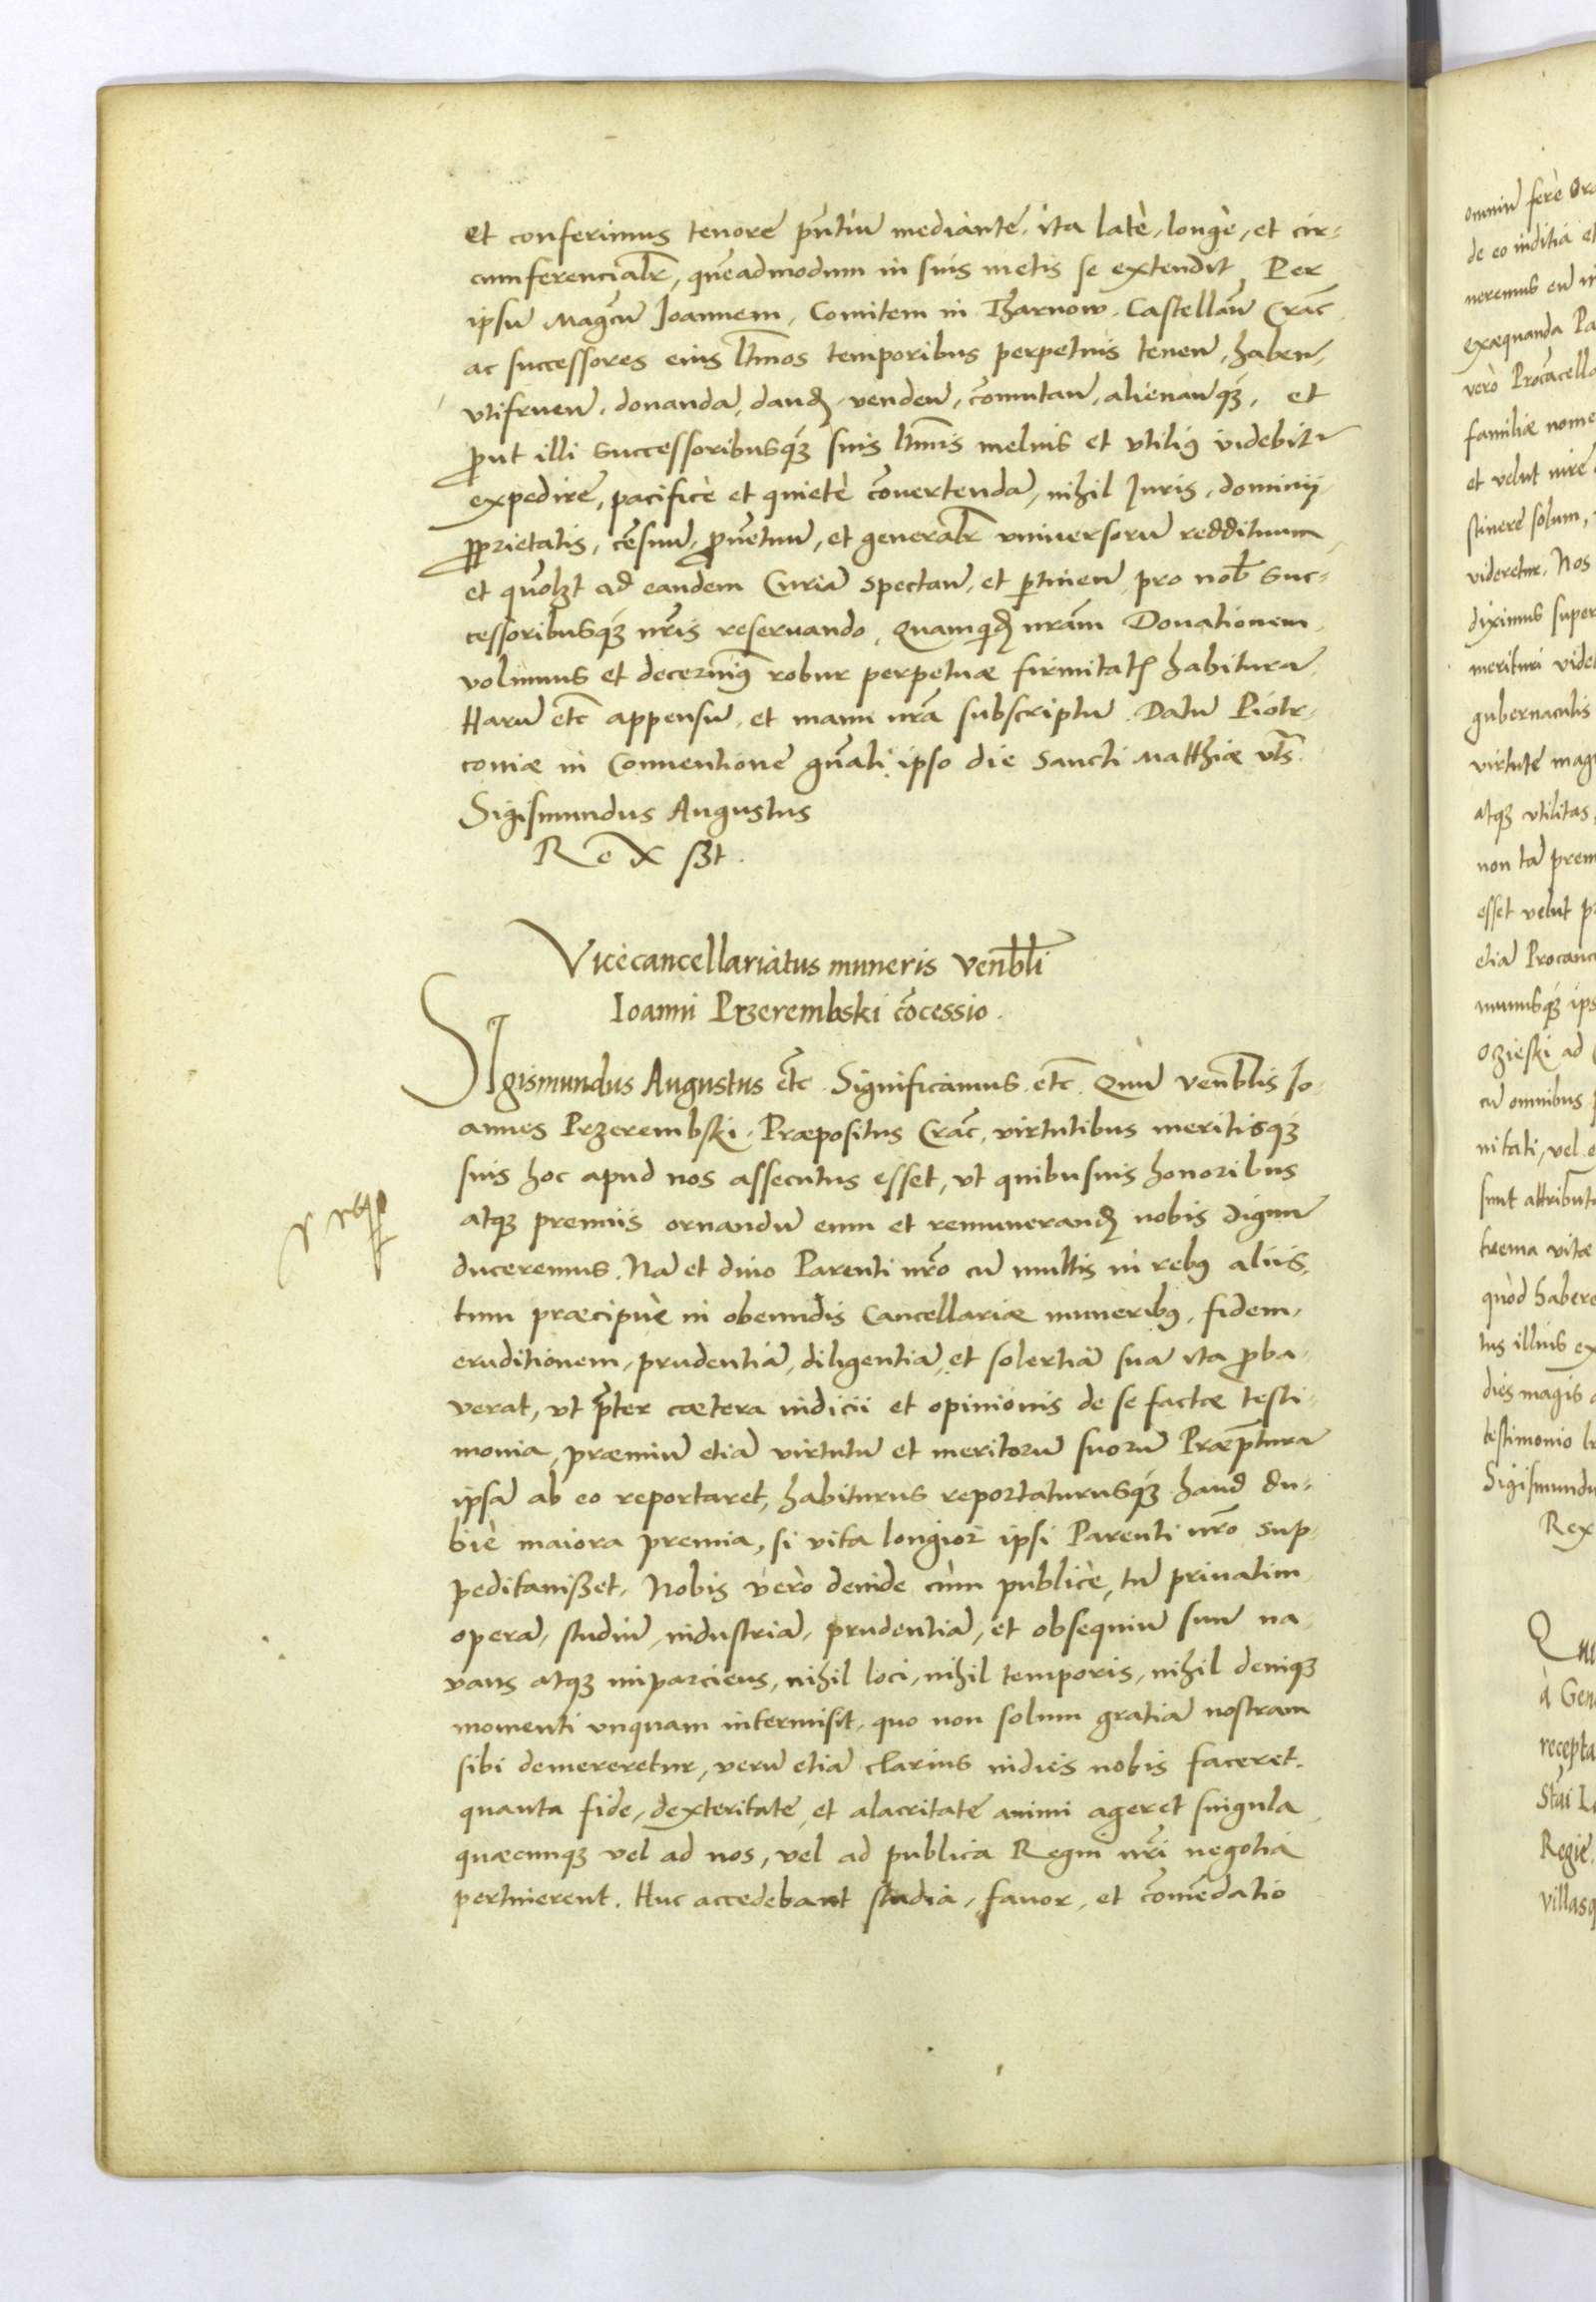 et conferimus tenore pñtiũ mediante, ita latè, longè, et cir-
cumferencialr̃, quẽadmodum in suis metis se extendit, Per
ipsũ Magcũ Joannem, Comitem in Tharnow, Castellanũ Cracõ
ac successores eius lt̃imos temporibus perpetuis tenen̄, haben̄,
vtifruen̄, donanda, dand, venden̄, cõmutan̄, alienan̄q3, et
prout illi successoribusq3 suis lt̃imis melius et vtilius videbitr
expedire, pacificè et quietè cõuertenda, nihil Juris, dominij,
pprietatis, cẽsuũ, prouẽtuũ, et generalr̃ vniuersorũ reddituum,
et quõlzt ad eandem Curiã spectan̄, et ptinen̄ pro nob̃ suc-
cessoribusq3 nr̃is reseruando, Quamqd nrãm Donationem,
volumus et decernimus robur perpetuæ firmitatis habiturã
Harũ etc̃ appensũ, et manu nrã subscriptũ. Datũ Piotr-
couiæ in Conuentione gñali ipso die Sancti Matthiæ vts̃.
Sigismundus Augustus
Rex sst.
Vicecancellariatus muneris Venb̃li
Ioanni Przerembski cõcessio.
SIgismundus Augustus etc̃. Significamus etc̃. Quũ venb̃lis Jo-
annes Przerembski, Præpositus Cracõ, virtutibus meritisq3
suis hoc apud nos assecutus esset, vt quibusuis honoribus
atq3 premiis ornandũ eum et remunerand nobis dignũ
duceremus. Nã et diuo Parenti nrõ cũ multis in rebus aliis,
tum præcipuè in obeundis Cancellariæ muneribus, fidem,
eruditionem, prudentiã, diligentiã, et solertiã suã ita proba-
verat, vt prẽter cætera iudicii et opinionis de se factæ testi-
monia, præmiũ etiã virtutũ et meritorũ suorũ Præpturã
ipsã ab eo reportaret, habiturus reportaturusq3 haud du-
biè maiora premia, si vita longior ipsi Parenti nrõ sup-
peditauisset. Nobis verò deinde cùm publicè, tũ priuatim
operã, studiũ, industriã, prudentiã, et obsequiũ suũ na-
vans atq3 imparciens, nihil loci, nihil temporis, nihil deniq3
momenti vnquam intermisit, quo non solum gratiã nostram
sibi demereretur, verũ etiã clarius indies nobis faceret.
quanta fide, dexteritate, et alacritate animi ageret singula
quæcunq3 vel ad nos, vel ad publica Regni nr̃i negotia
pertinerent. Huc accedebant studia, fauor, et cõmẽdatio
omniũ ferè
de eo inditia et
neremus eũ
exæquanda
verò
familiæ
et velut
stinere solum,
videretur. Nos
diximus
gubernaculis
virtute
atq3 vtilitas
non tã
esset velut
etiã
munusq3
cũ omnibus
nitati, vel
sunt
trema vitæ
quòd
tus illius
dies magis
testimonio
Rex
receptã
Regiẽ